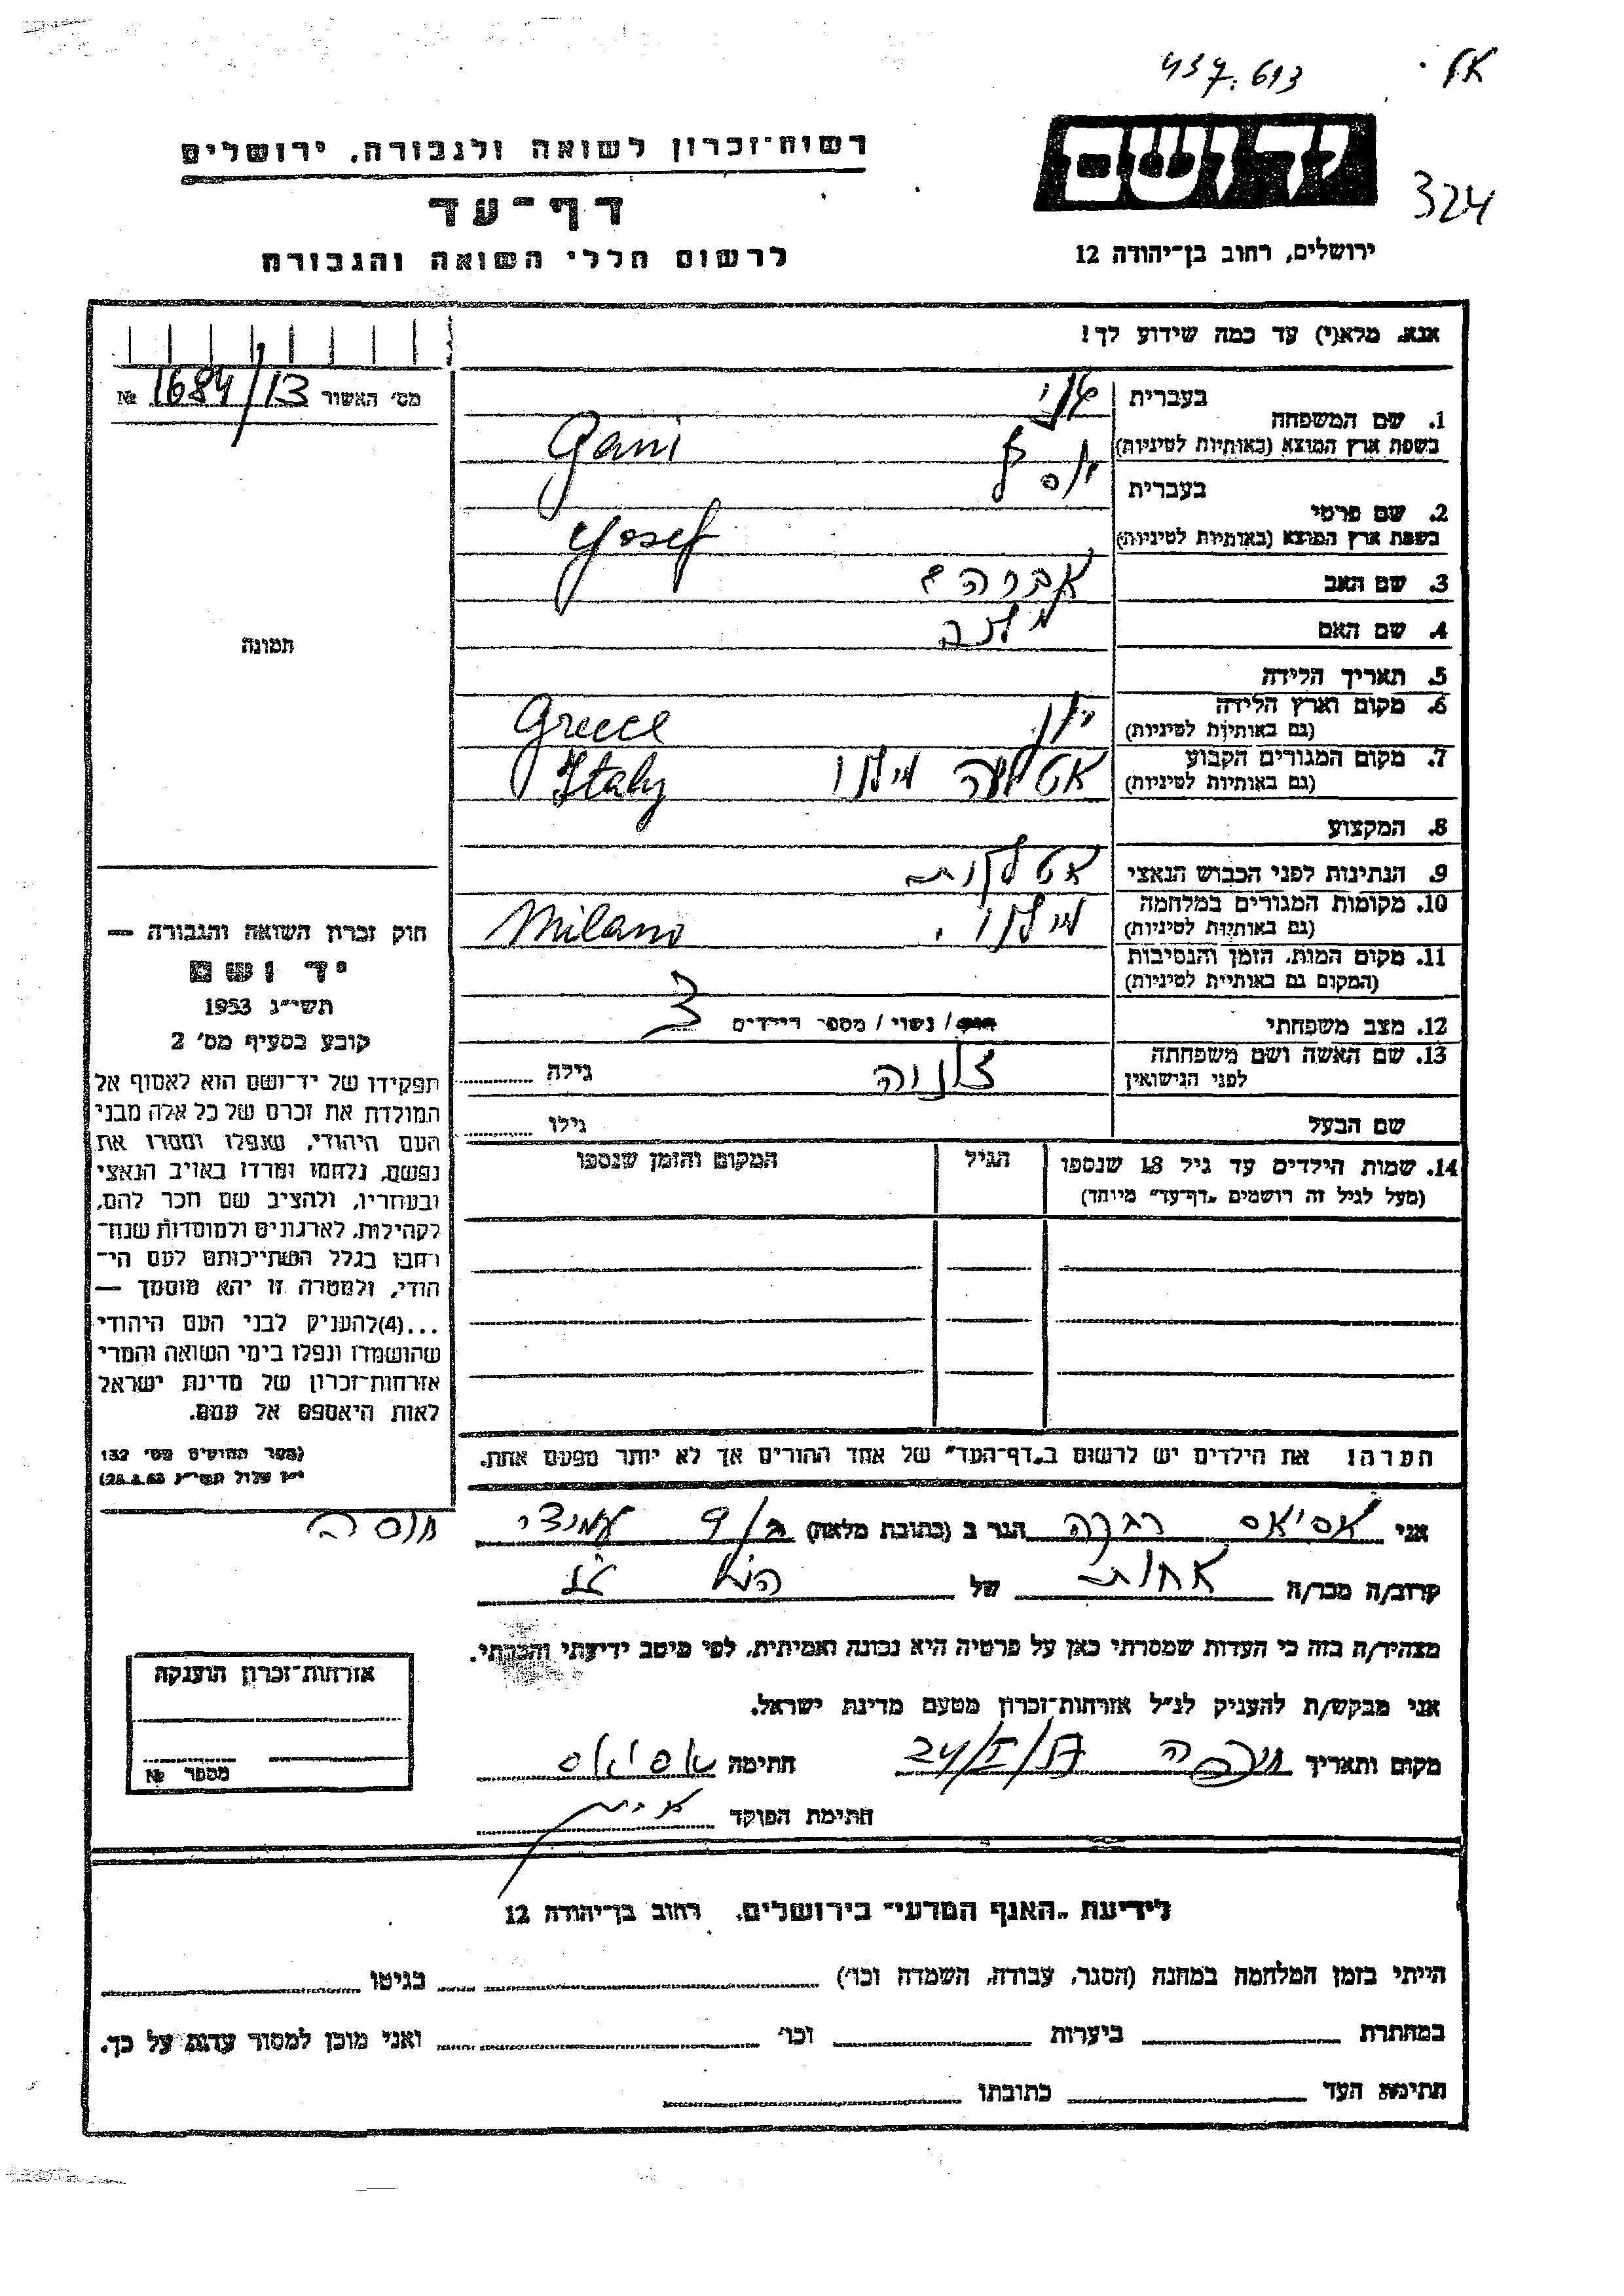 437.613
324
יד ושם
ירושלים, רחוב בן־יהודה 12
רשות־זכרון לשואה ולגבורה, ירושלים
דף־עד
לרשום חללי השואה והגבורה
אנא, מלא(י) עד כמה שידוע לך!
מס׳ האשור 1684/13 №
1. שם המשפחה
בעברית גני
בשפת ארץ המוצא (באותיות לטיניות) Gani
2. שם פרטי
בעברית יוסף
בשפת ארץ המוצא (באותיות לטיניות) Yosef
3. שם האב אברהם
4. שם האם
5. תאריך הלידה
6. מקום וארץ הלידה יון Greece
(גם באותיות לטיניות)
7. מקום המגורים הקבוע אטליה מילנו Italy
(גם באותיות לטיניות)
8. המקצוע
9. הנתינות לפני הכבוש הנאצי
10. מקומות המגורים במלחמה מילנו. Milano
(גם באותיות לטיניות)
11. מקום המות, הזמן והנסיבות
(המקום גם באותיות לטיניות)
12. מצב משפחתי רווק / נשוי / מספר הילדים 3
13. שם האשה ושם משפחתה
לפני הנישואין
גילה
שם הבעל גילו
14. שמות הילדים עד גיל 18 שנספו
(מעל לגיל זה רושמים „דף־עד״ מיוחד)
הגיל
המקום והזמן שנספו
תמונה
חוק זכרון השואה והגבורה —
יד ושם
תשי״ג 1953
קובע בסעיף מס׳ 2
תפקידו של יד־ושם הוא לאסוף אל
המולדת את זכרם של כל אלה מבני
העם היהודי, שנפלו ומסרו את
נפשם, נלחמו ומרדו באויב הנאצי
ובעוזריו, ולהציב שם וזכר להם,
לקהילות, לארגונים ולמוסדות שנח־
רבו בגלל השתייכותם לעם הי־
הודי, ולמטרה זו יהא מוסמך —
...(4)להעניק לבני העם היהודי
שהושמדו ונפלו בימי השואה והמרי
אזרחות־זכרון של מדינת ישראל
לאות היאספם אל עמם.
(ספר החוקים מס׳ 132
י״ז אלול תשי״ג 28.8.53)
הערה! את הילדים יש לרשום ב„דף־העד״ של אחד ההורים אך לא יותר מפעם אחת.
אני אסיאס רבקה הגר ב (כתובת מלאה)
קרוב/ה מכר/ה אחות של
מצהיר/ה בזה כי העדות שמסרתי כאן על פרטיה היא נכונה ואמיתית, לפי מיטב ידיעתי והכרתי.
אני מבקש/ת להעניק לנ״ל אזרחות־זכרון מטעם מדינת ישראל.
מקום ותאריך חיפה 24/I/57 חתימה אסיאס
חתימת הפוקד
אזרחות־זכרון הוענקה
מספר №
לידיעת „האגף המדעי״ בירושלים, רחוב בן־יהודה 12
הייתי בזמן המלחמה במחנה (הסגר, עבודה, השמדה וכו׳) בגיטו
במחתרת ביערות וכו׳ ואני מוכן למסור עדות על כך.
חתימת העד כתובתו